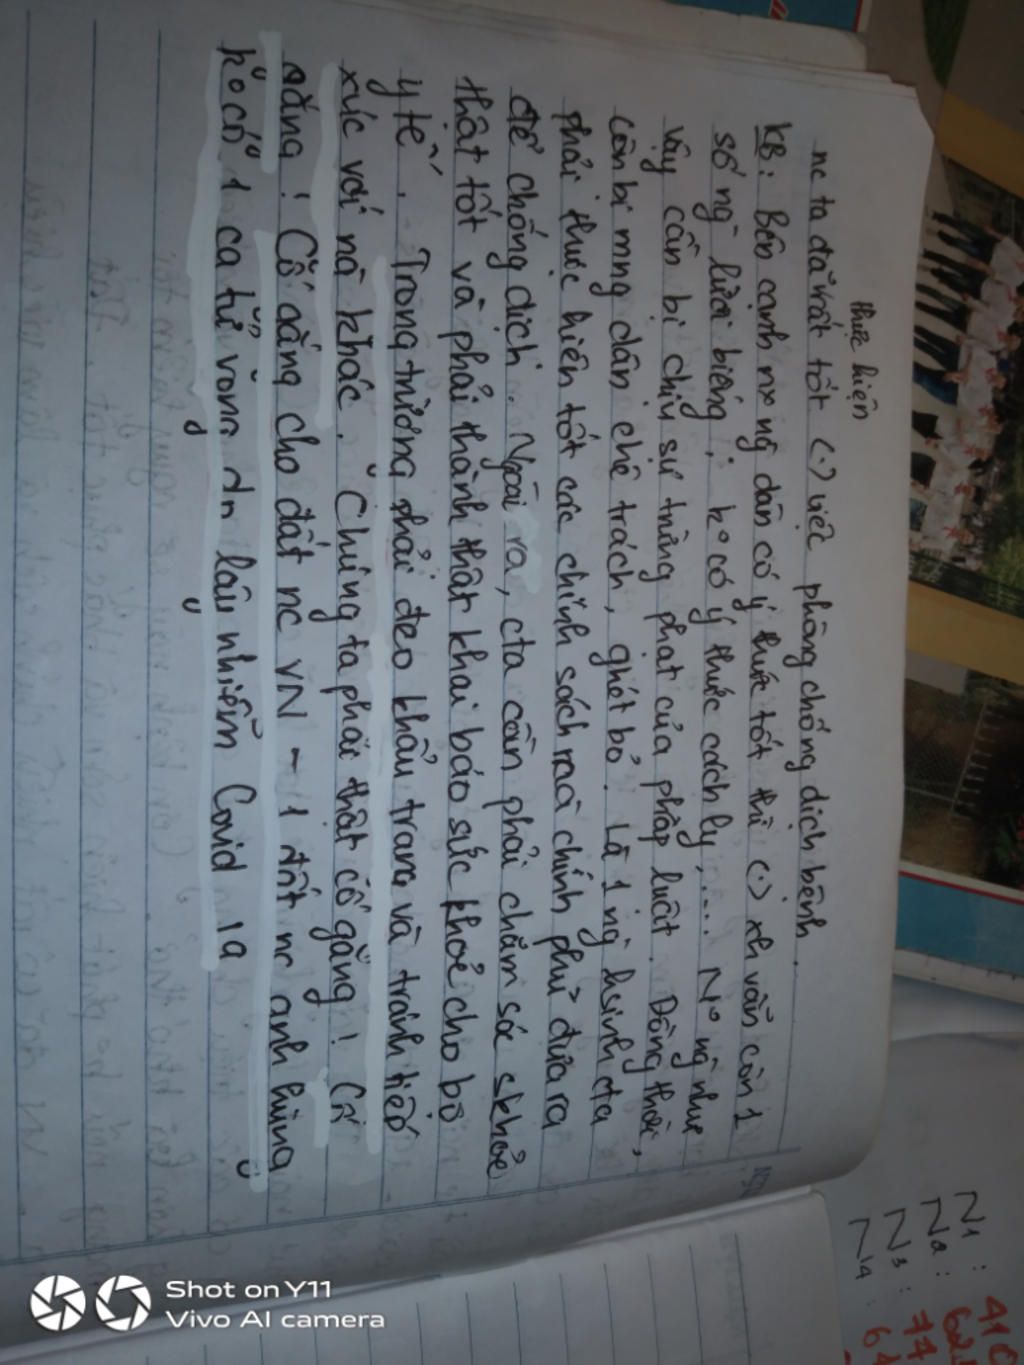 thực hiện
nc ta đã rất tốt (-) việc phòng chống dịch bệnh.
KB: Bên cạnh nx ng dân có ý thức tốt thì (-) xh vẫn còn 1
số ng lười biếng; k° có ý thức cách ly,.... N° ng như
vậy cần bị chịu sự trừng phạt của pháp luật. Đồng thời,
còn bị mng dân chê trách, ghét bỏ. Là 1 ng hsinh cta
phải thực hiện tốt các chính sách mà chính phủ đưa ra
để chống dịch. Ngoài ra, cta cần phải chăm sóc skhoẻ
thật tốt và phải thành thật khai báo sức khoẻ cho bộ
y tế. Trong trường phải đeo khẩu trang và tránh tiếp
xúc với nà khác. Chúng ta phải thật cố gắng! Cố
gắng! Cố gắng cho đất nc VN - 1 đất nc anh hùng
k° có 1 ca tử vong dn lây nhiễm Covid 19
N1 :
N2 :
N3 : 77
N4 :
Shot on Y11
Vivo AI camera